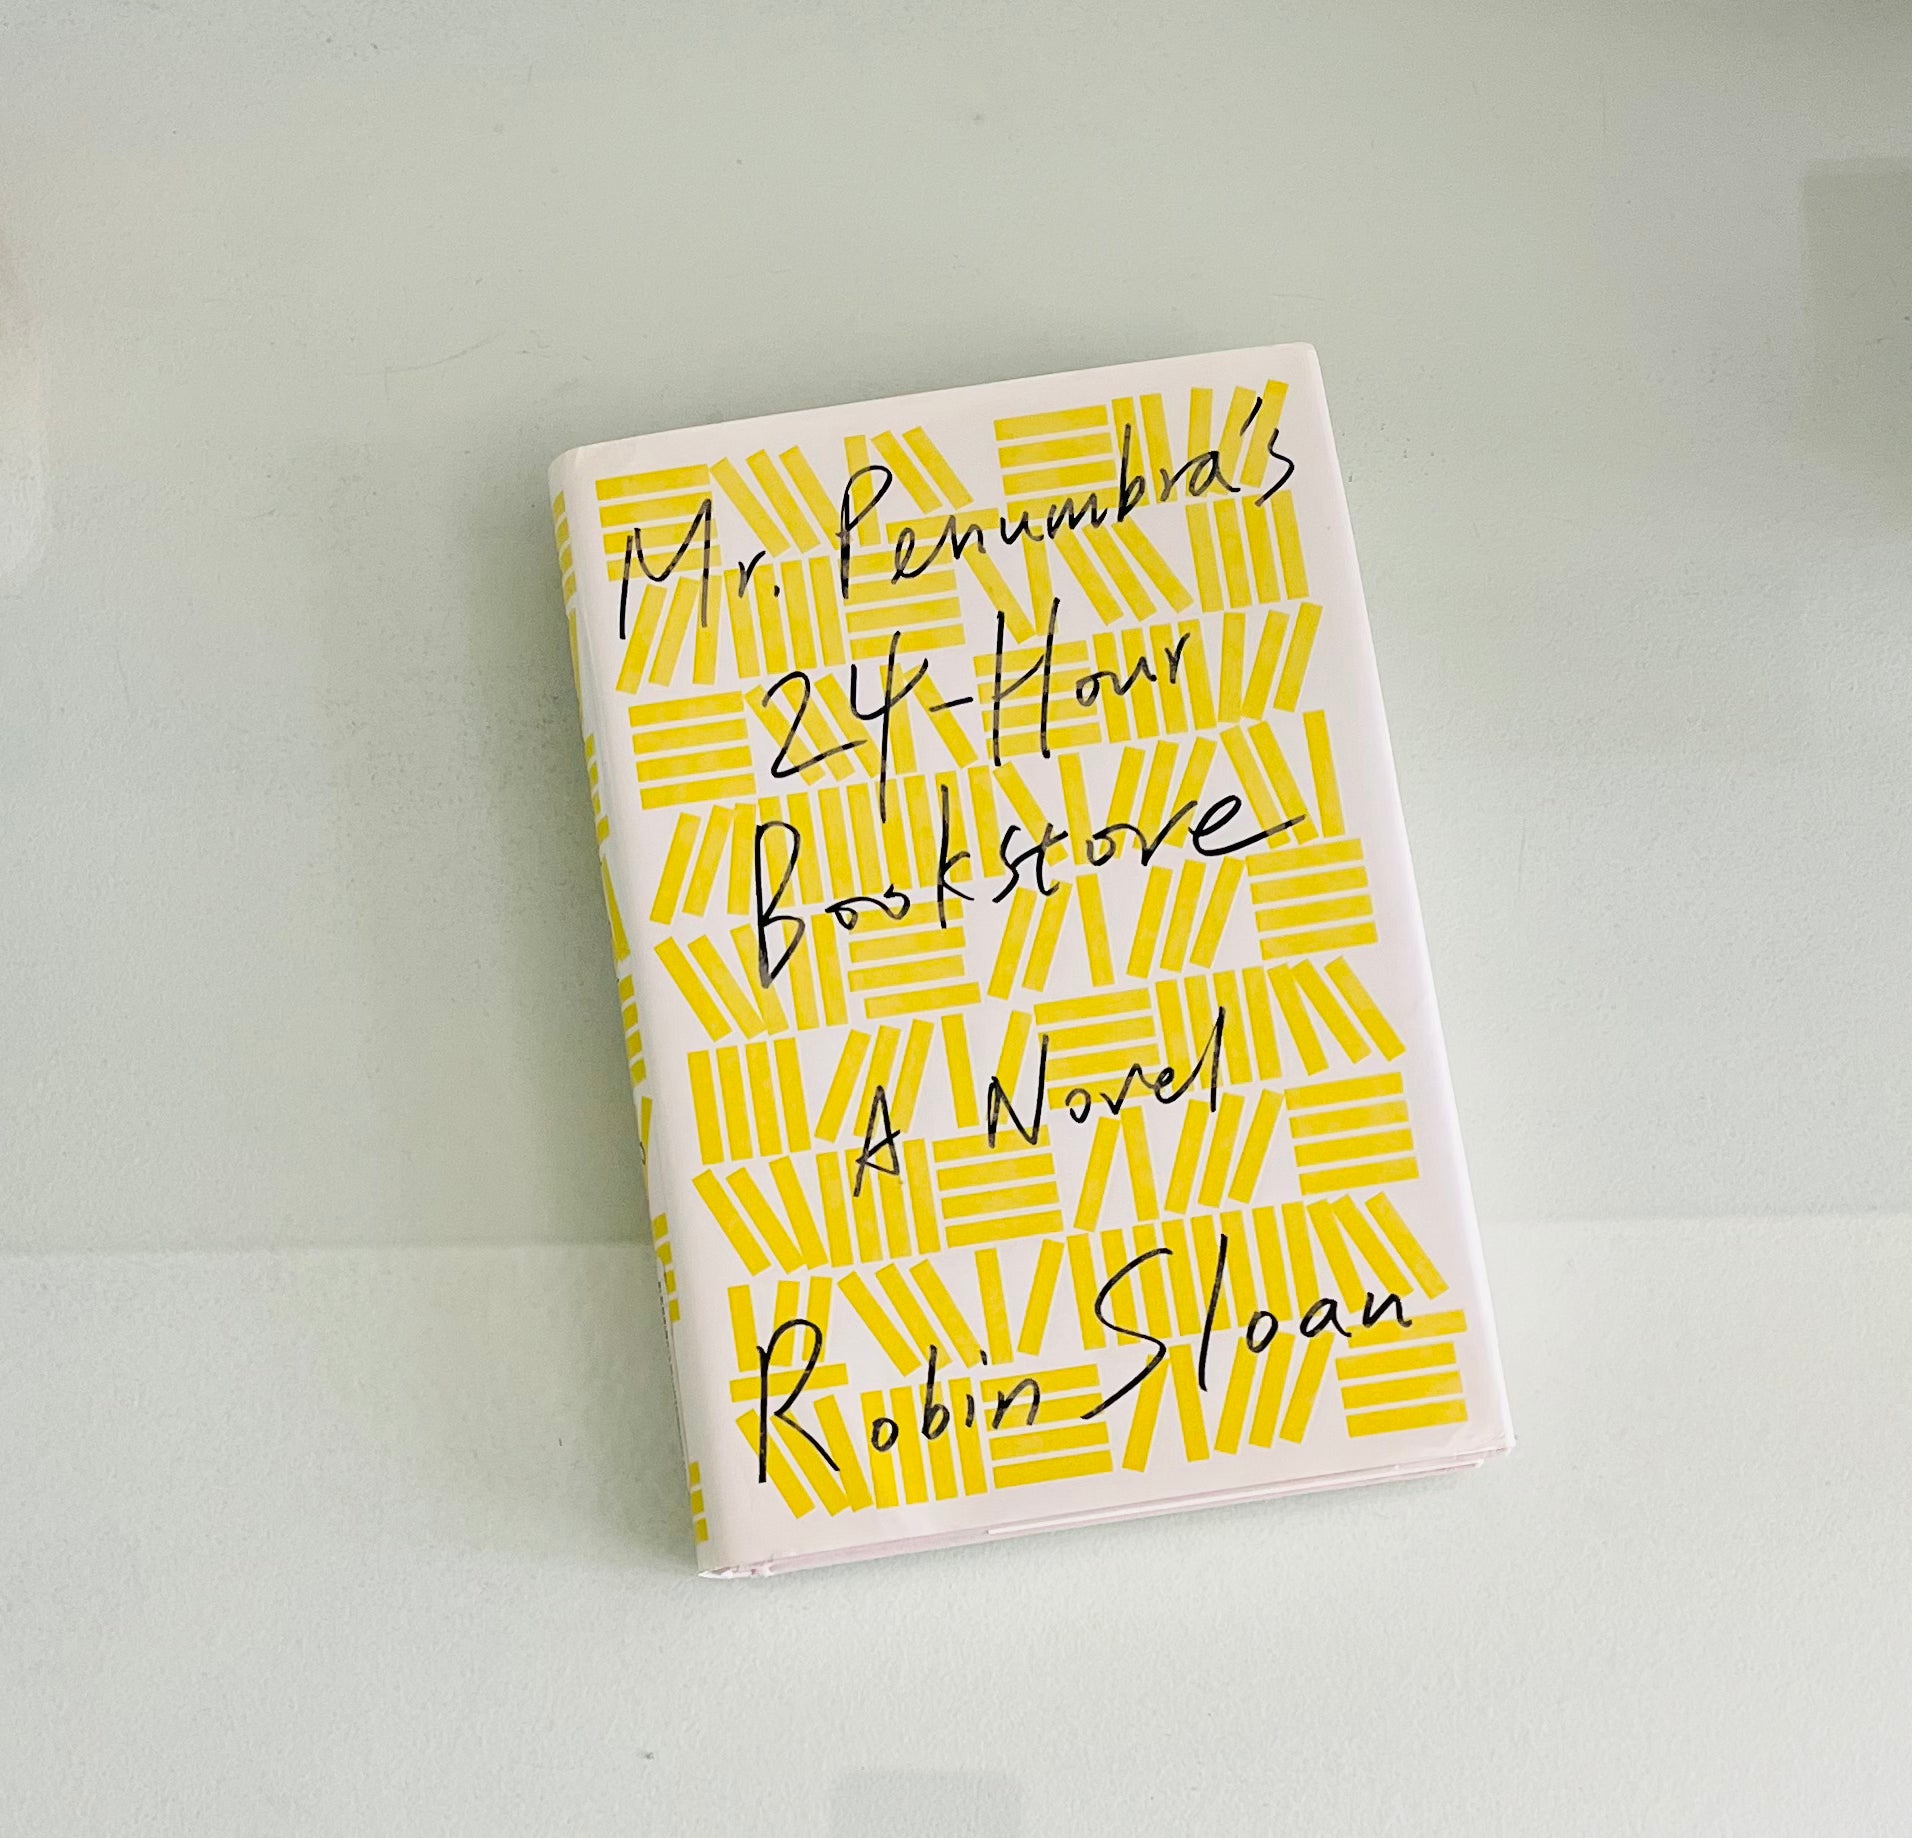 Mr. Penumbra's
24-Hour
Bookstore
A Novel
Robin Sloan